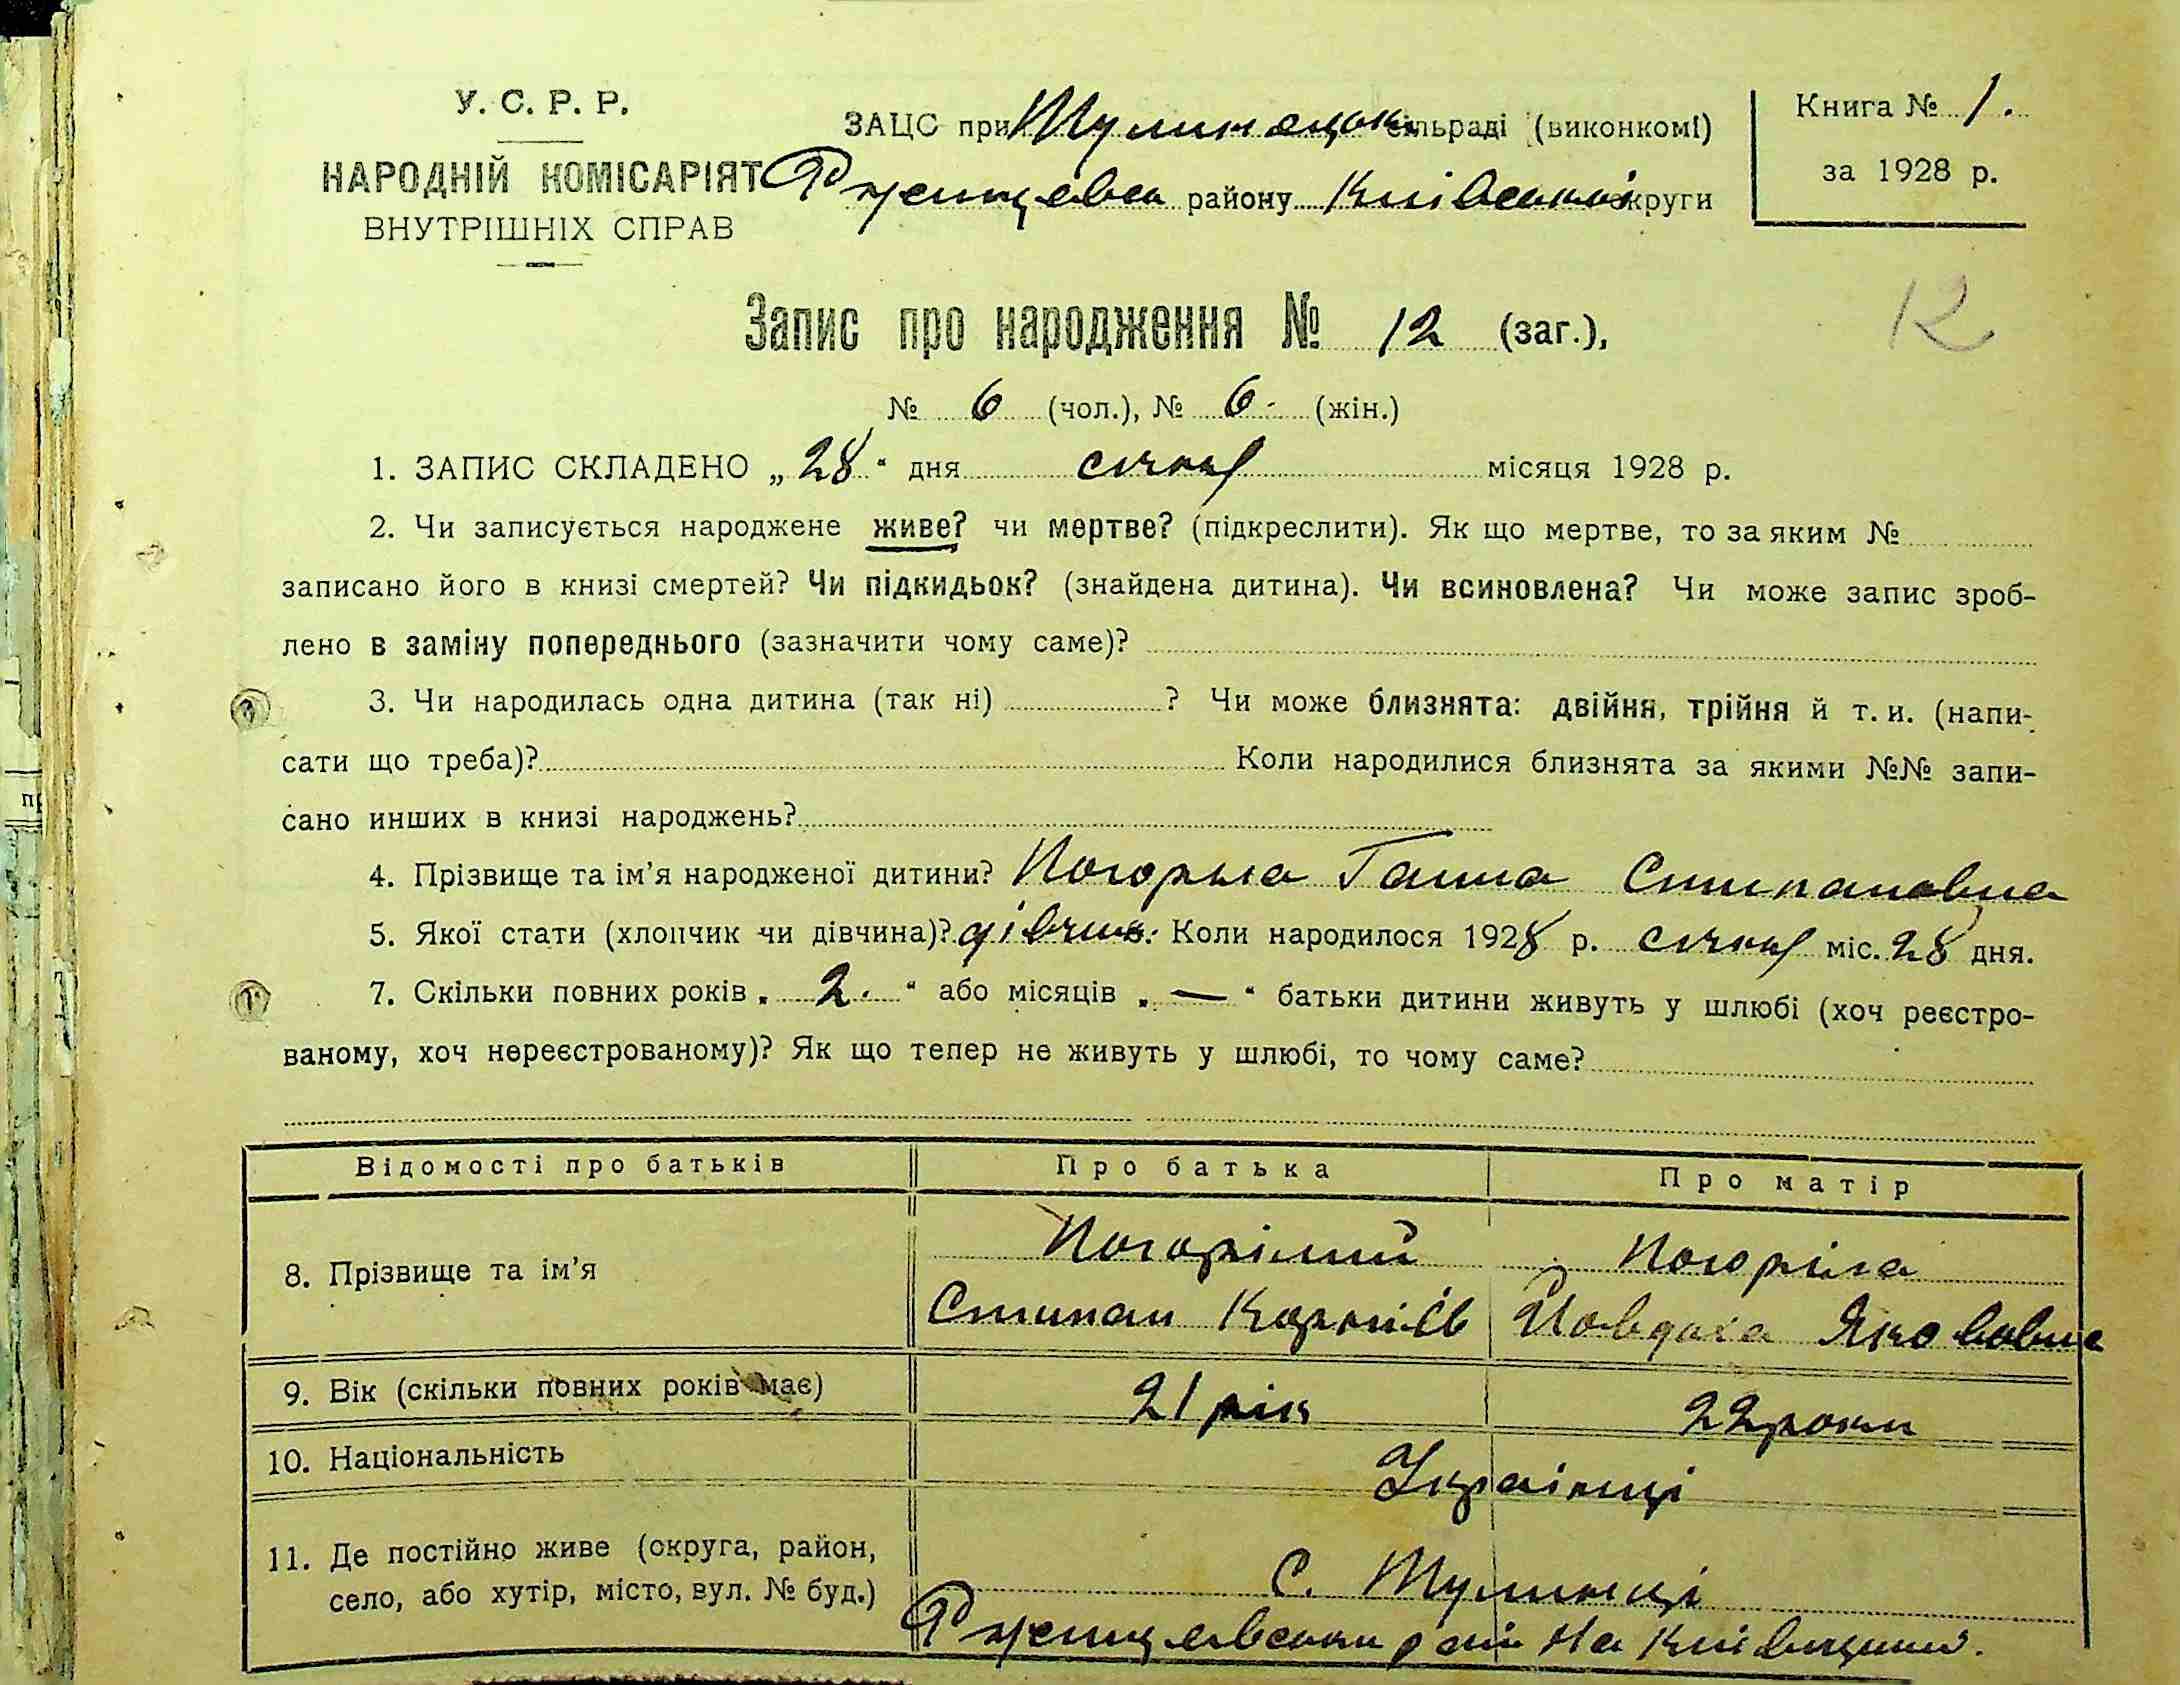 У. С. Р. Р.
НАРОДНІЙ КОМІСАРІЯТ
ВНУТРІШНІХ СПРАВ
ЗАЦС при Тулинецькій сільраді (виконкомі)
району Київської округи
Книга № 1.
за 1928 р.
12
Запис про народження № 12 (заг.),
№ 6 (чол.), № 6. (жін.)
1. ЗАПИС СКЛАДЕНО „28“ дня січня місяця 1928 р.
2. Чи записується народжене живе? чи мертве? (підкреслити). Як що мертве, то за яким №
записано його в книзі смертей? Чи підкидьок? (знайдена дитина). Чи всиновлена? Чи може запис зроб-
лено в заміну попереднього (зазначити чому саме)?
3. Чи народилась одна дитина (так ні) ? Чи може близнята: двійня, трійня й т. и. (напи-
сати що треба)? Коли народилися близнята за якими №№ запи-
сано инших в книзі народжень?
4. Прізвище та ім'я народженої дитини? Погоріла Ганна Стипановна
5. Якої стати (хлопчик чи дівчина)? дівчин. Коли народилося 1928 р. січня міс. 28 дня.
7. Скільки повних років „ 2. “ або місяців „ — “ батьки дитини живуть у шлюбі (хоч реєстро-
ваному, хоч нереєстрованому)? Як що тепер не живуть у шлюбі, то чому саме?
Відомості про батьків Про батька Про матір
8. Прізвище та ім'я
Погорілий Погоріла
Стипан Корніїв Йовдоха Якововна
9. Вік (скільки повних років має) 21 рік 22 роки
10. Національність Українці
11. Де постійно живе (округа, район,
село, або хутір, місто, вул. № буд.)
С. Тулинці
рай на Київщині.